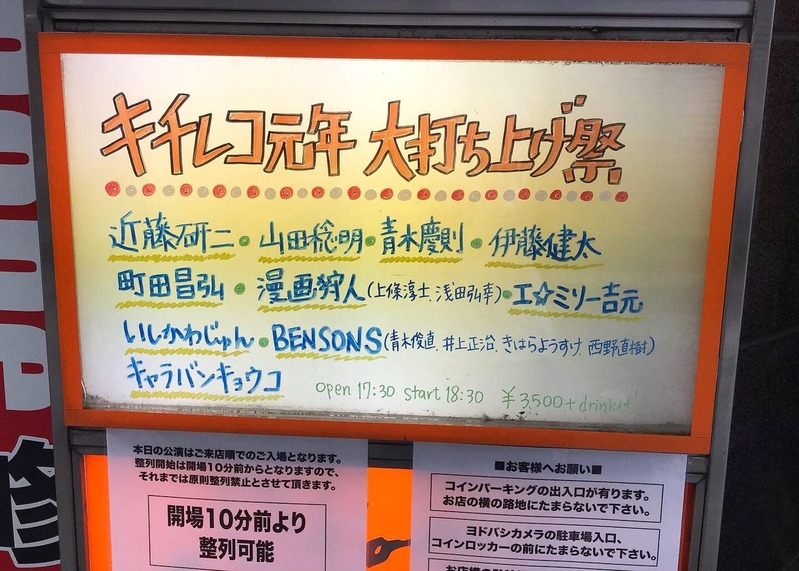 キチレコ元年 大打ち上げ祭
近藤研二・山田稔明・青木慶則・伊藤健太
町田昌弘・漫画狩人(上條淳士、浅田弘幸)・エ☆ミリー吉元
いしかわじゅん・BENSONS(青木俊直、井上正治、きはらようすけ、西野直樹)
キャラバンキョウコ
open 17:30 start 18:30 ¥3,500+drink
本日の公演はご来店順でのご入場となります。
整列開始は開場10分前からとなりますので、
それまでは原則整列禁止とさせて頂きます。
開場10分前より
整列可能
■お客様へお願い■
コインパーキングの出入口が有ります。
お店の横の路地にたまらないで下さい。
ヨドバシカメラの駐車場入口、
コインロッカーの前にたまらないで下さい。